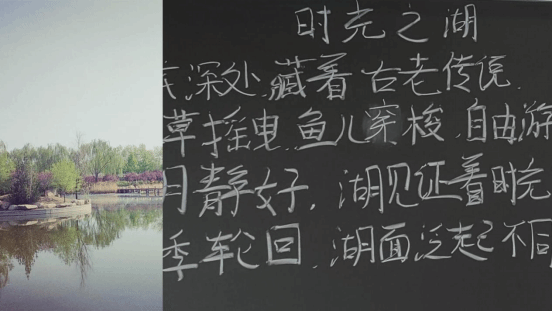 时光之湖
深处,藏着古老传说,
草摇曳,鱼儿穿梭,自由游
月静好,湖见证着时光
季轮回,湖面泛起不同